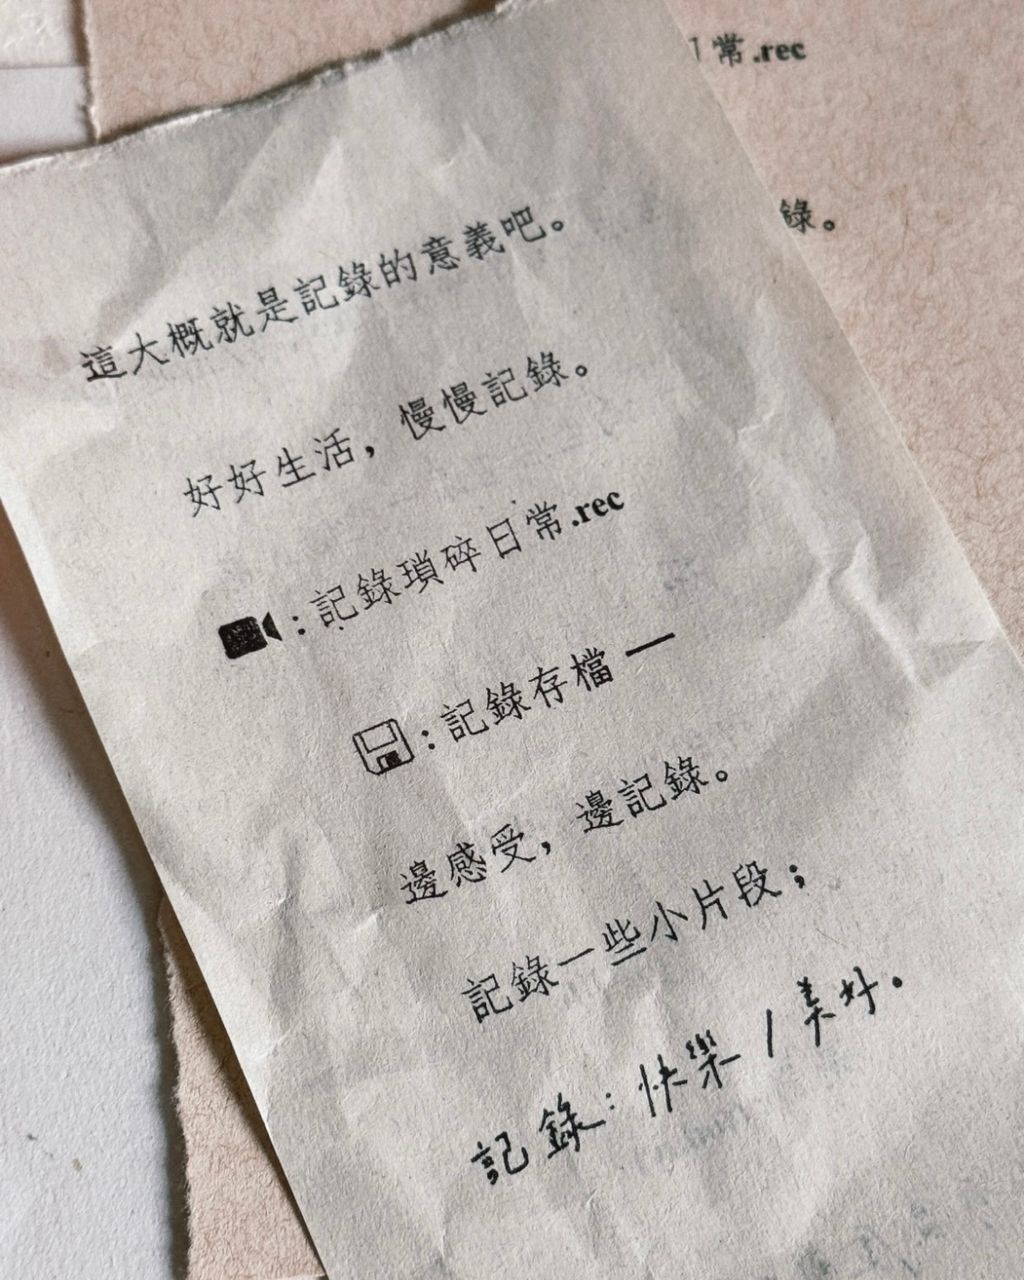 常.rec
錄。
這大概就是記錄的意義吧。
好好生活，慢慢記錄。
：記錄瑣碎日常.rec
：記錄存檔 —
邊感受，邊記錄。
記錄一些小片段；
記錄：快樂 / 美好。